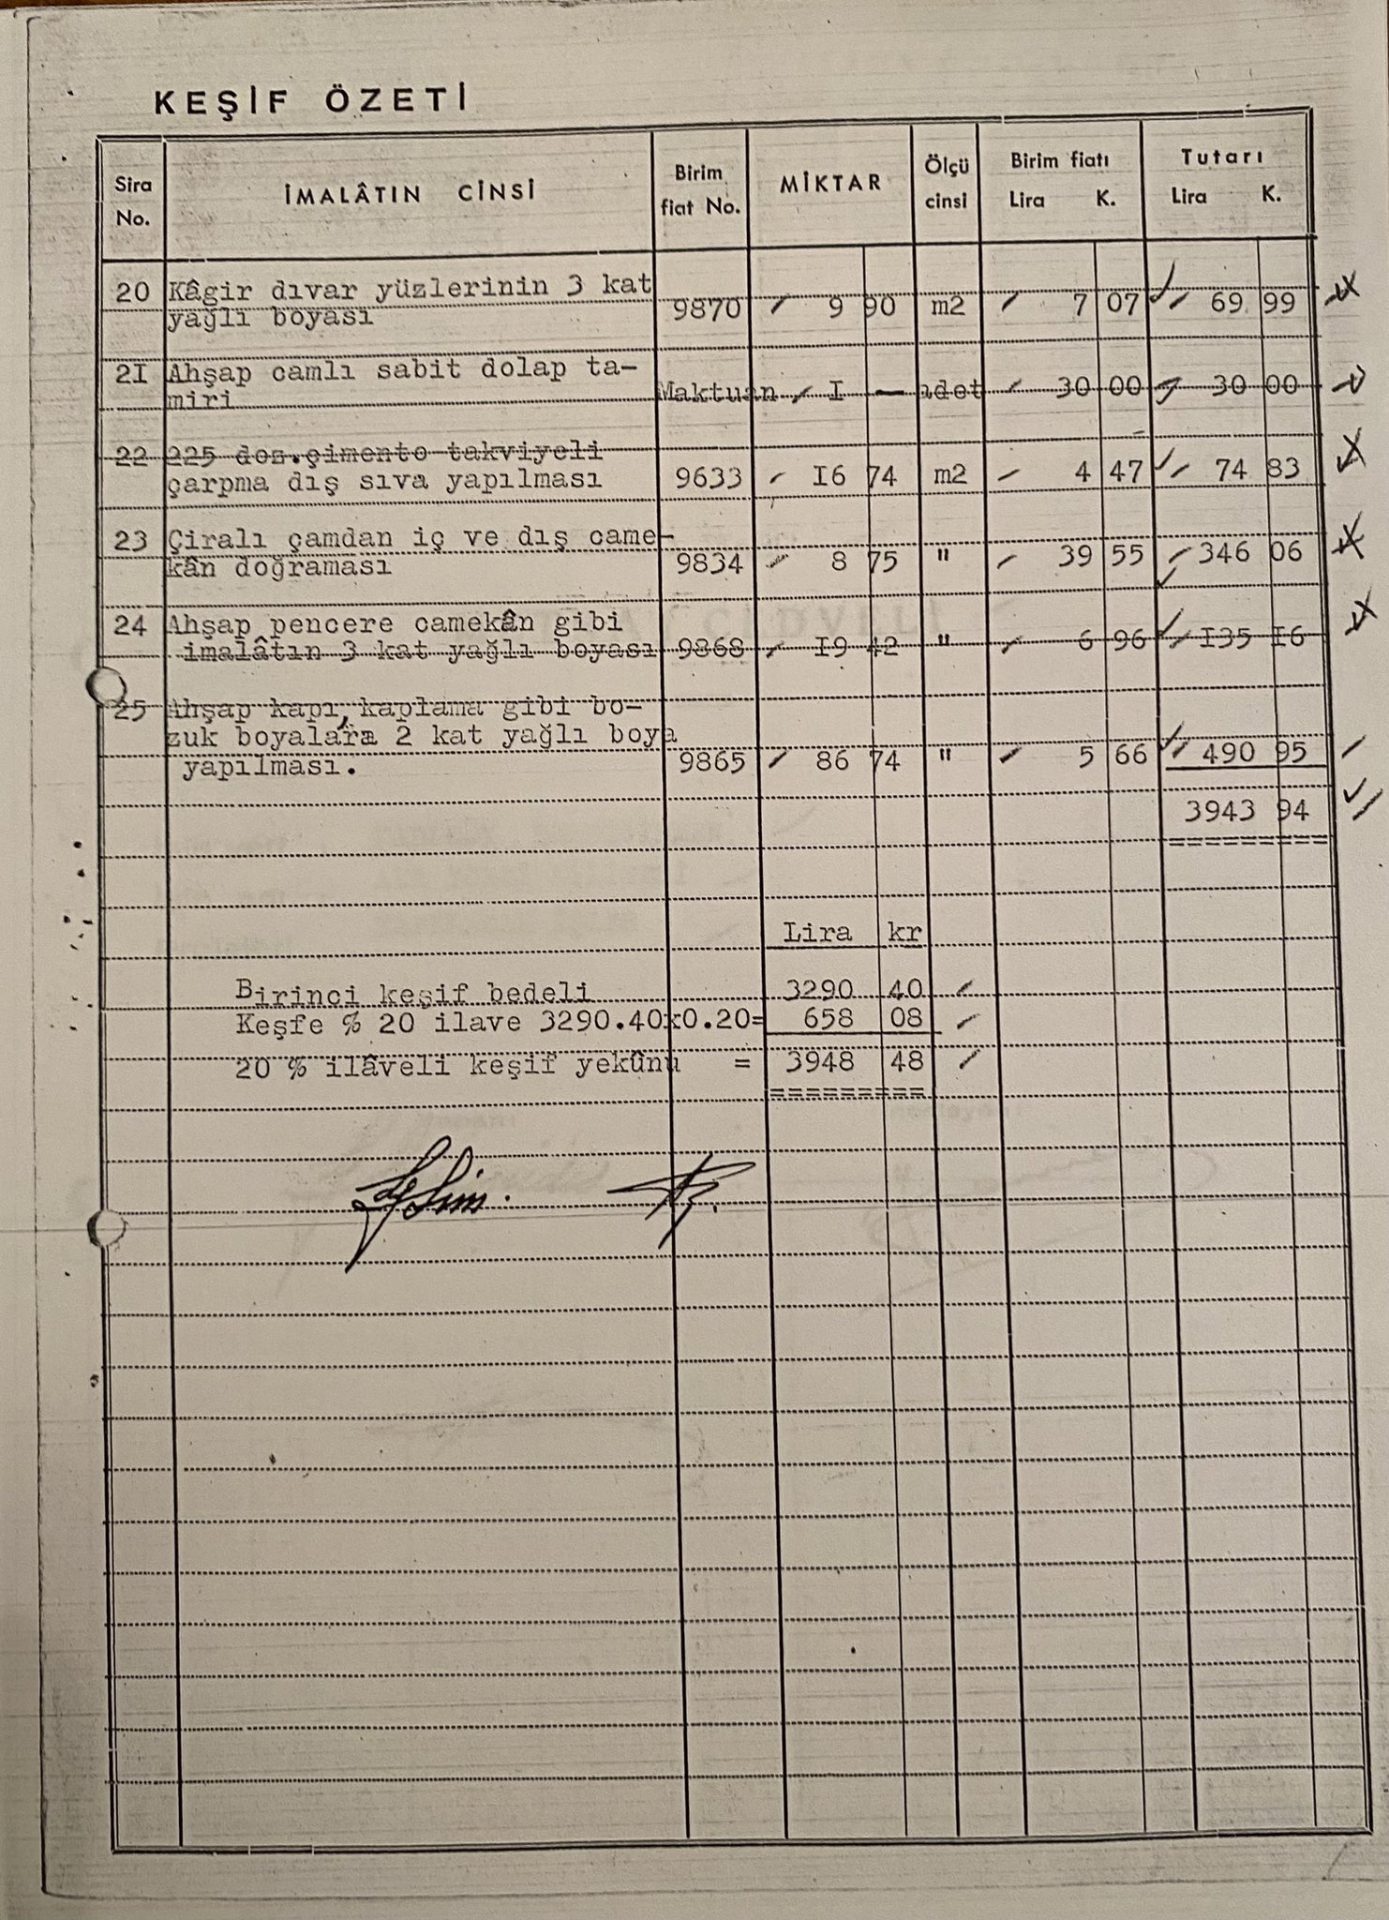 KEŞİF ÖZETİ
Sira No. İMALÂTIN CİNSİ Birim fiat No. MİKTAR Ölçü cinsi Birim fiatı Lira K. Tutarı Lira K.
20 Kâgir dıvar yüzlerinin 3 kat
yağlı boyası 9870 9 90 m2 7 07 69 99
2I Ahşap camlı sabit dolap ta-
miri Maktuan I — adet 30 00 30 00
22 225 doz.çimento takviyeli
çarpma dış sıva yapılması 9633 I6 74 m2 4 47 74 83
23 Çiralı çamdan iç ve dış came-
kân doğraması 9834 8 75 " 39 55 346 06
24 Ahşap pencere camekân gibi
imalâtın 3 kat yağlı boyası 9868 I9 42 " 6 96 I35 I6
25 Ahşap kapı, kaplama gibi bo-
zuk boyalara 2 kat yağlı boya
yapılması. 9865 86 74 " 5 66 490 95
3943 94
=========
Lira kr
Birinci keşif bedeli 3290 40
Keşfe % 20 ilave 3290.40x0.20= 658 08
20 % ilâveli keşif yekûnu = 3948 48
=========